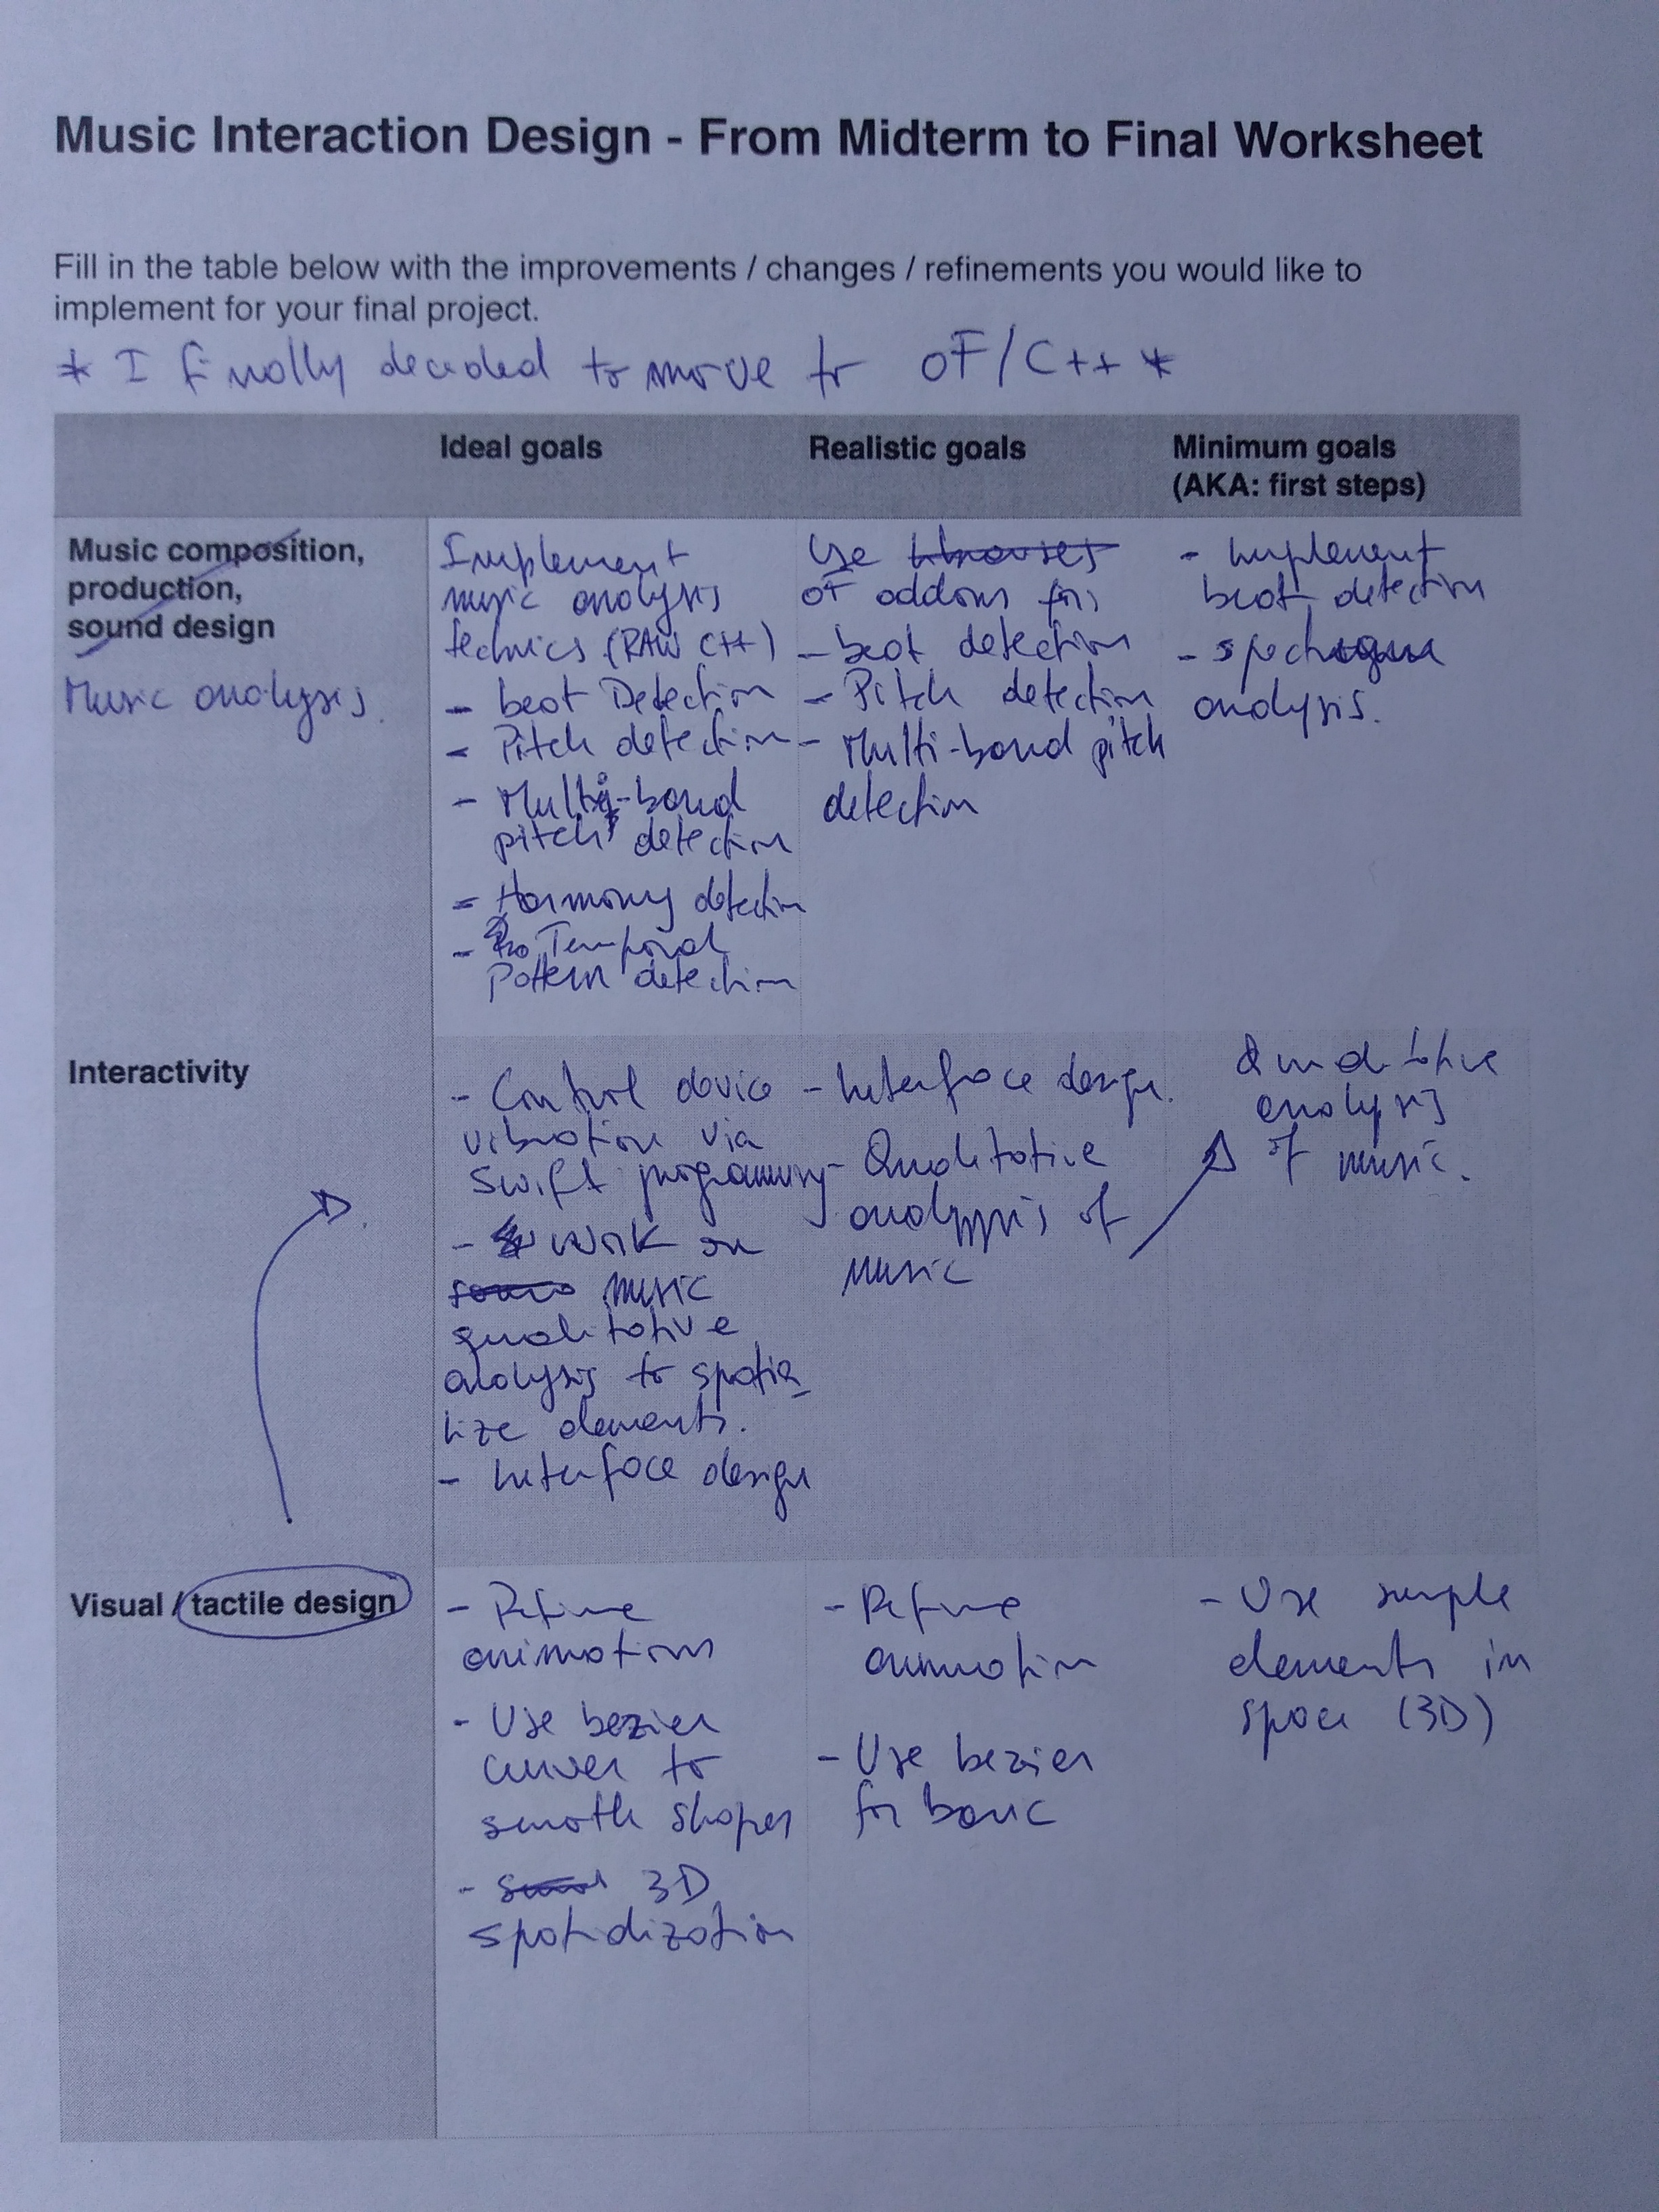 Music Interaction Design - From Midterm to Final Worksheet
Fill in the table below with the improvements / changes / refinements you would like to
implement for your final project.
* I finally decided to move to oF/C++ *
Ideal goals
Realistic goals
Minimum goals
(AKA: first steps)
Music composition,
production,
sound design
Music analysis.
Implement
music analysis
technics (RAW C++)
- beat Detection
- Pitch detection
- Multi-band
pitch detection
- Harmony detection
- Temporal
Pattern detection
Use
oF addons for
- beat detection
- Pitch detection
- Multi-band pitch
detection
- Implement
beat detection
-
analysis.
Interactivity
- Control device
vibration via
Swift programming
- Work on
music
qualitative
analysis to spatia
lize elements.
- Interface design
- Interface design.
- Qualitative
analysis of
music
Qualitative
analysis
of music.
Visual / tactile design
- Refine
animations
- Use bezier
curves to
smoth shapes
- 3D
spatialization
- Refine
animation
- Use bezier
for basic
- Use simple
elements in
space (3D)